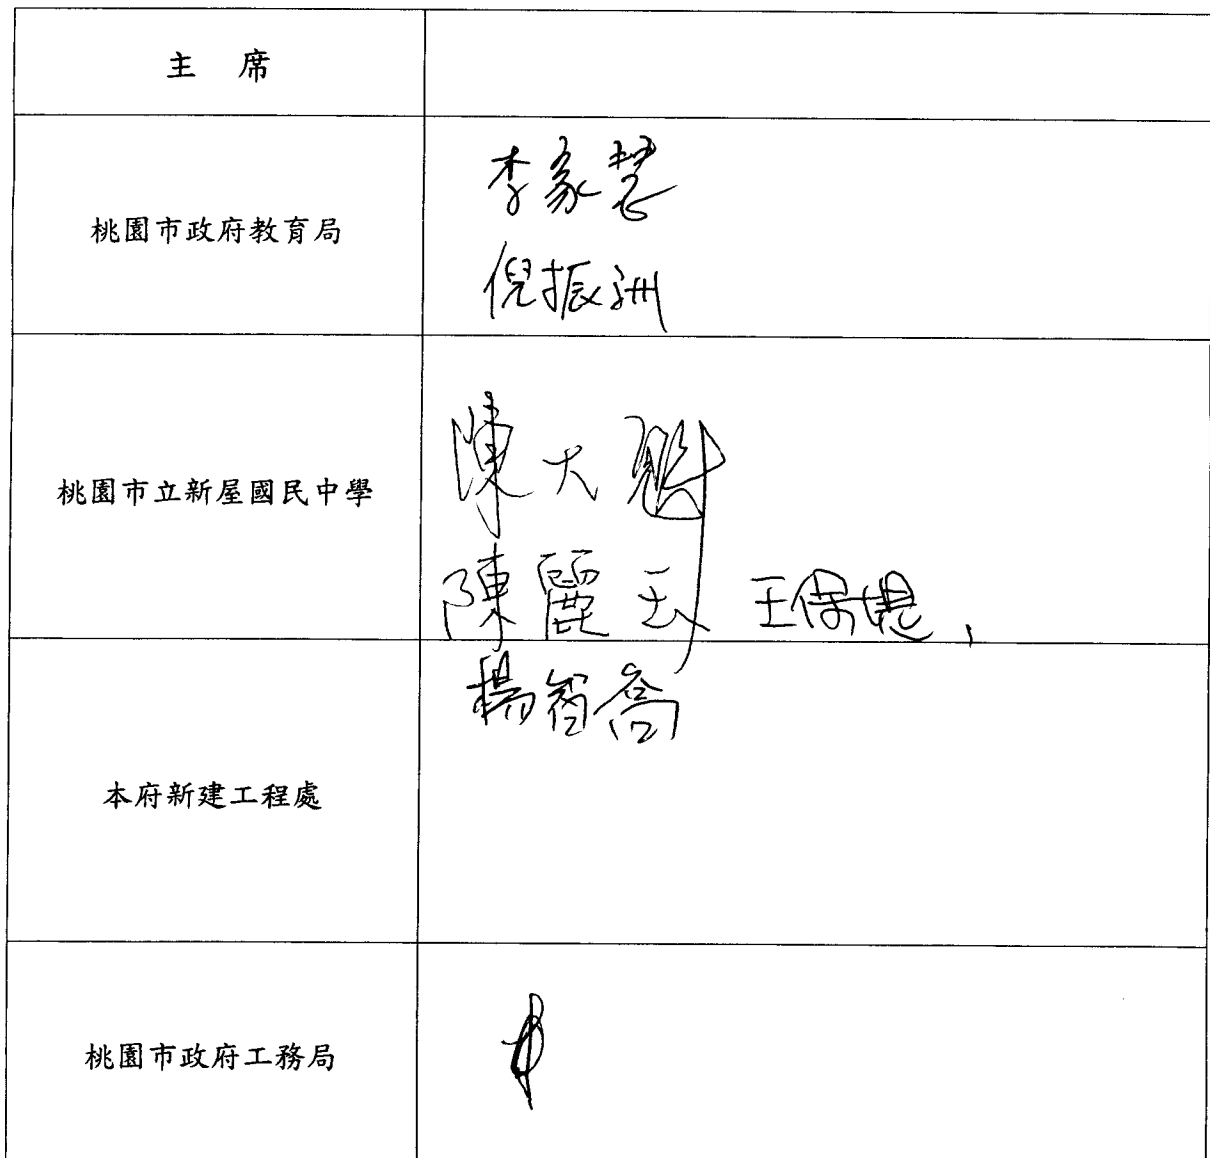 主 席
桃園市政府教育局
李家慧
倪振洲
桃園市立新屋國民中學
陳大魁
陳麗玉 王保堤
本府新建工程處
楊智喬
桃園市政府工務局